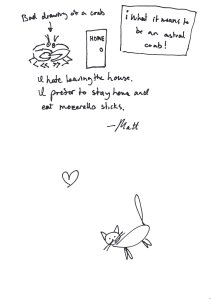 Bad drawing of a crab
HOME
i What it means to
be an astral
crab!
I hate leaving the house.
I prefer to stay home and
eat mozzarella sticks.
—Matt